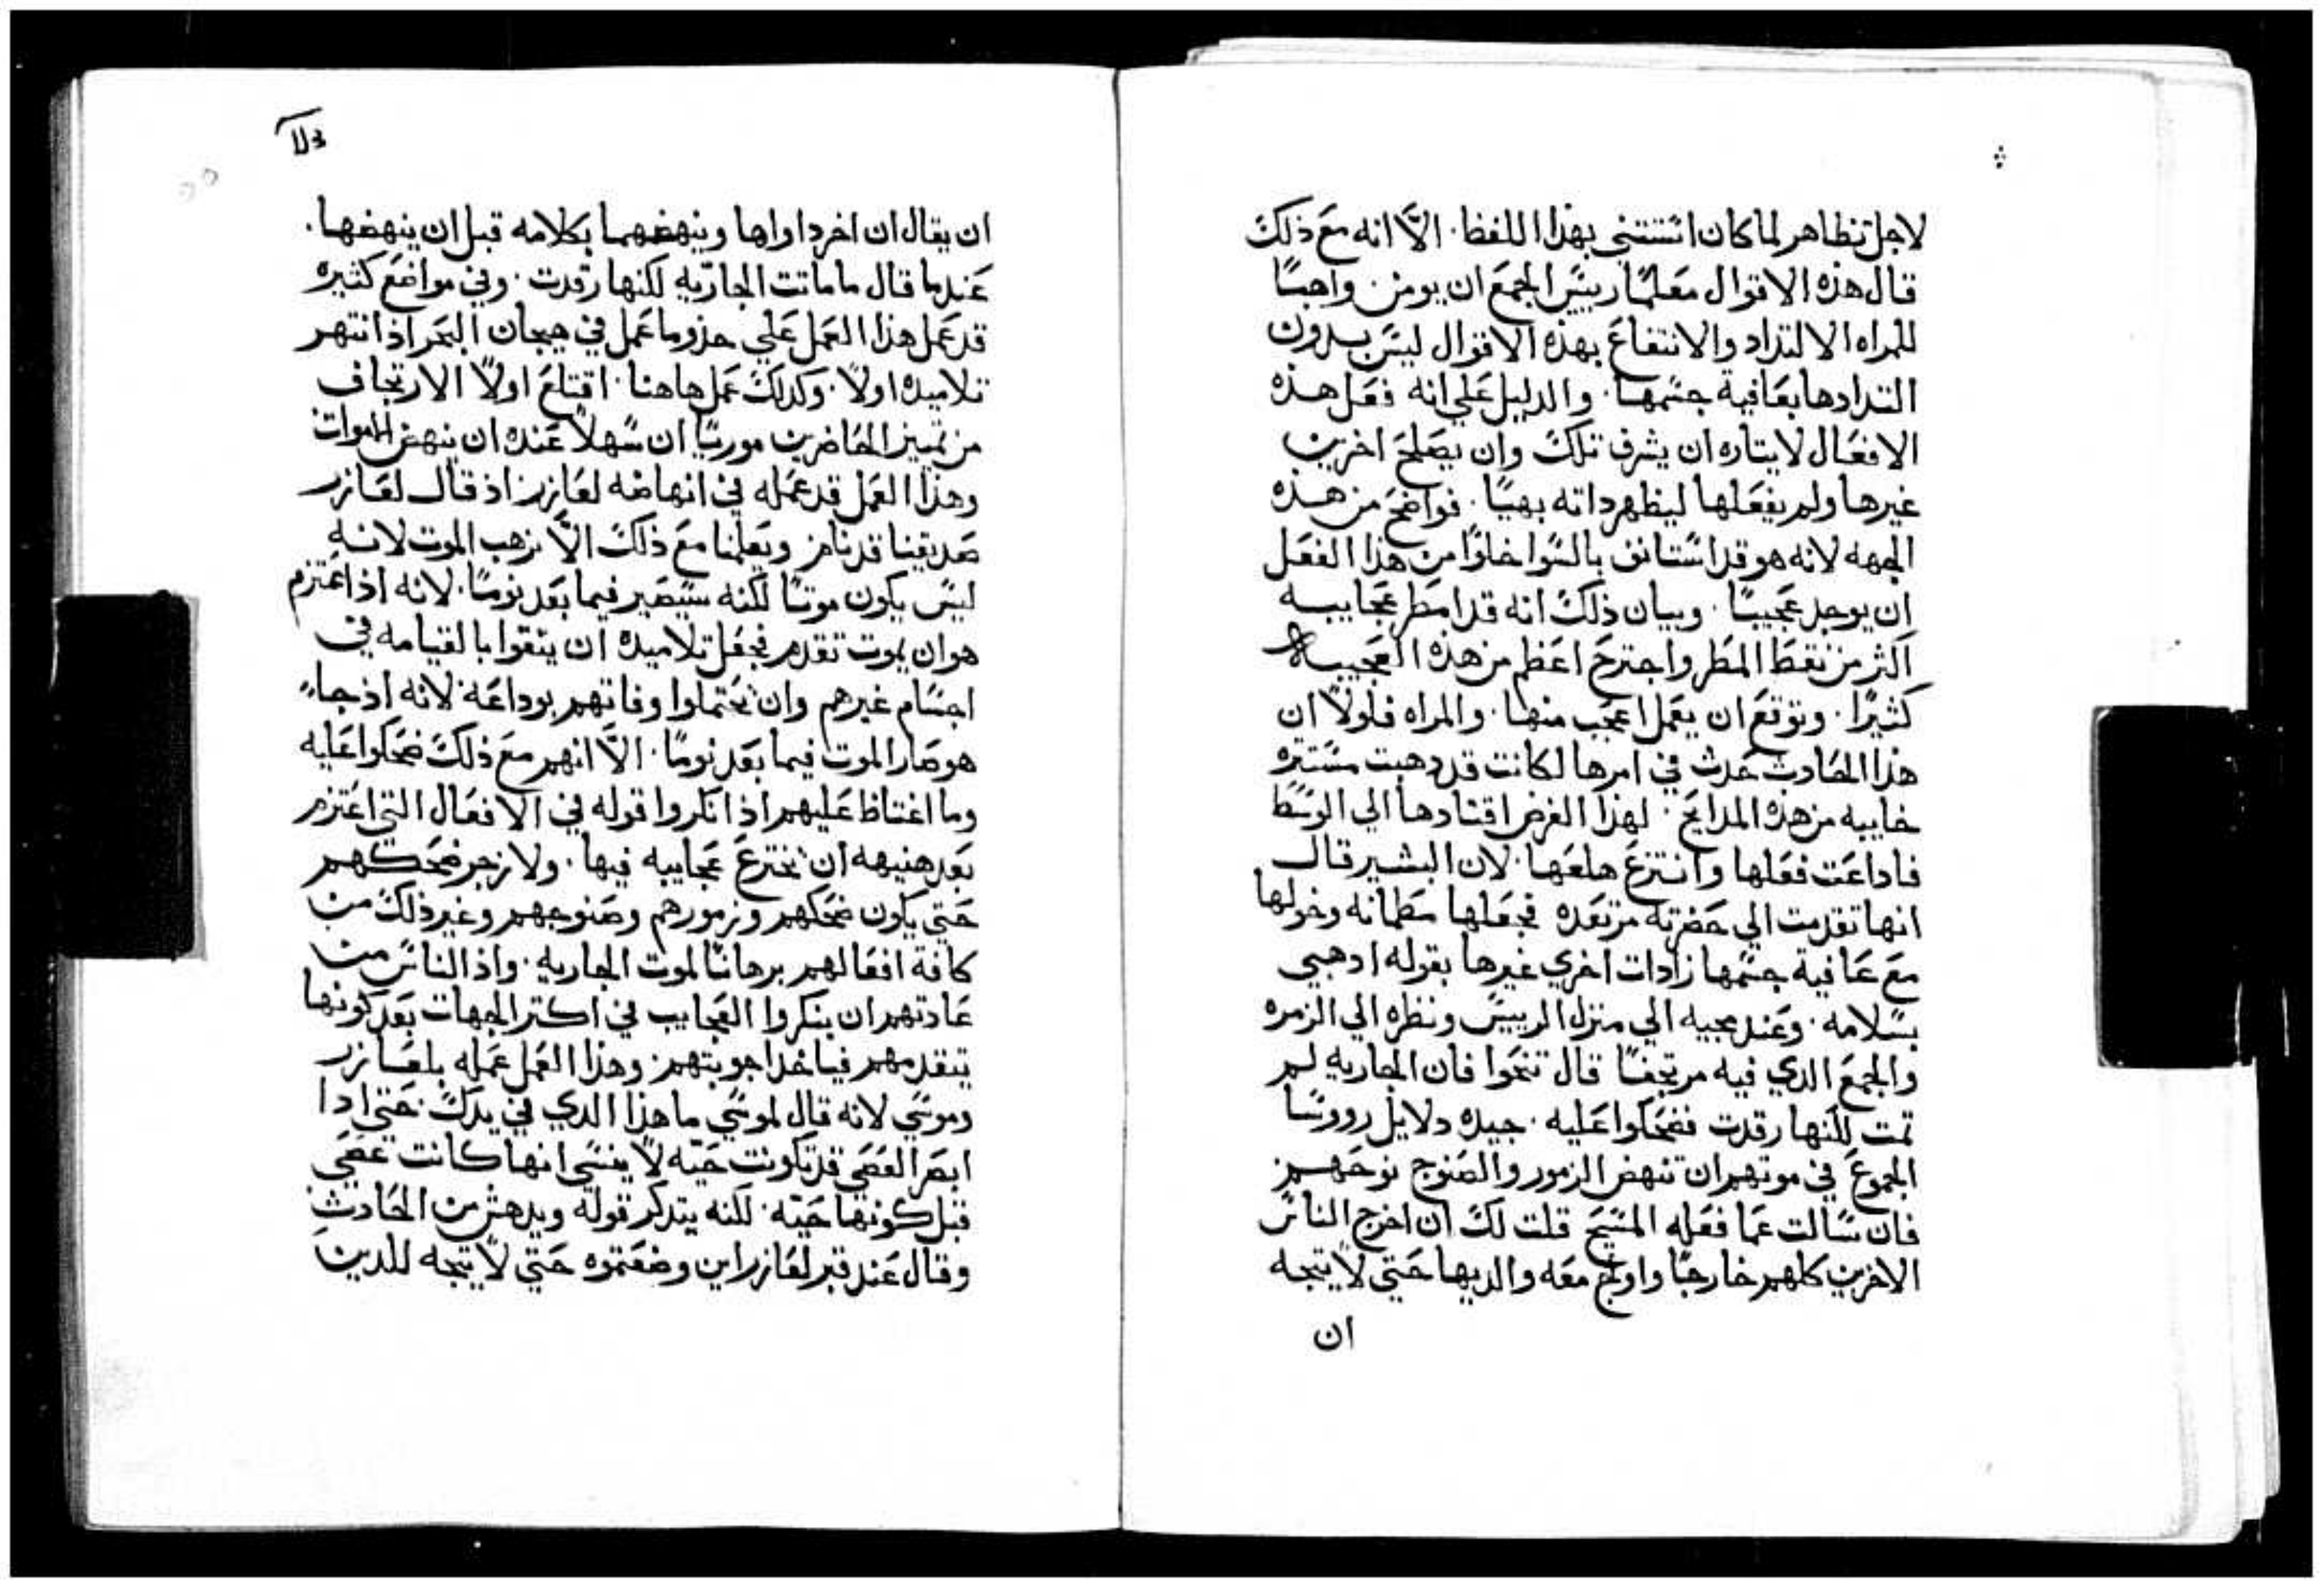 لاجل تظاهر لما كان استثنى بهذا اللفظ. الا انه مع ذلك
قال هذه الاقوال معلمًا رييس المجمع ان يومن. واهبًا
للمراه الالتداد والانتفاع بهذه الاقوال ليس بدون
التدادها بعافية جسمها. والدليل علي انه فعل هذه
الافعال لايتاره ان يشرف تلك وان يصلح اخرين
غيرها ولم يفعلها ليظهر داته بهيًا. فواضح من هذه
الجهه لانه هو قد استانف بالسوا خلوًا من هذا الفعل
ان يوجد عجيبًا. وبيان ذلك انه قد امطر عجايبه
اكثر من نقط المطر واجترح اعظم من هذه العجيبه
كثيرًا. وتوقع ان يعمل اعجب منها. والمراه فلولا ان
هذا الحادث حدث في امرها لكانت قد دهبت مستتره
خاييه من هذه المدايح. لهذا الغرض اقتادها الي الوسط
فاداعت فعلها وانتزع هلعها. لان البشير قال
انها تقدمت الي حضرته مرتعده فجعلها مطمانه وخولها
مع عافية جسمها زادات اخري غيرها بقوله ادهبي
بسلامه. وعند مجيه الي منزل الرييس ونظره الي الزمره
والجمع الدي فيه مرتجفًا قال تنحوا فان الجاريه لم
تمت لكنها رقدت فضحكوا عليه. جيده دلايل رووسا
المجموع في موتهم ان تنهض الزمور والصنوج نوحهم
فان سالت عما فعله المسيح قلت لك ان اخرج الناس
الاخرين كلهم خارجًا واولج معه والديها حتى لا يتجه
ان
ان يقال ان اخر داواها وينهضهما بكلامه قبل ان ينهضها.
عندما قال ما ماتت الجاريه لكنها رقدت. وفي مواضع كثيره
قد عمل هذا العمل علي حذو ما عمل في هيجان البحر اذ انتهر
تلاميده اولًا. وكدلك عمل هاهنا. اقتلع اولًا الارتجاف
من تمييز الحاضرين موريًا ان سهلًا عنده ان ينهض الاموات
وهذا العمل قد عمله في انهاضه لعازر اذ قال لعازر
صديقنا قد نام ويعلمنا مع ذلك الا نرهب الموت لانه
ليس يكون موتًا لكنه سيصير فيما بعد نومًا. لانه اذ اعتزم
هو ان يموت تقدم فجعل تلاميده ان يتقوا بالقيامه في
اجسام غيرهم وان يحتملوا وفاتهم بوداعة لانه اذ جا
هو صار الموت فيما بعد نومًا. الا انهم مع ذلك ضحكوا عليه
وما اغتاظ عليهم اذ انكروا قوله في الافعال التي اعتزم
بعد هنيهه ان يخترع عجايبه فيها. ولا زجر ضحكهم
حتي يكون ضحكهم وزمورهم وصنوجهم وغير ذلك من
كافة افعالهم برهانًا لموت الجاريه. واذ الناس من
عادتهم ان ينكروا العجايب في اكتر الجهات بعد كونها
يتقدمهم فياخد اجوبتهم. وهذا العمل عمله بلعازر
وموسي لانه قال لموسي ما هذا الدي في يدك. حتي ادا
ابصر العصي قد تكونت حيه لا ينسي انها كانت عصي
قبل كونها حيه. لكنه يتدكر قوله ويدهش من الحادث
وقال عند قبر لعازر اين وضعتموه حتي لا يتجه للدين